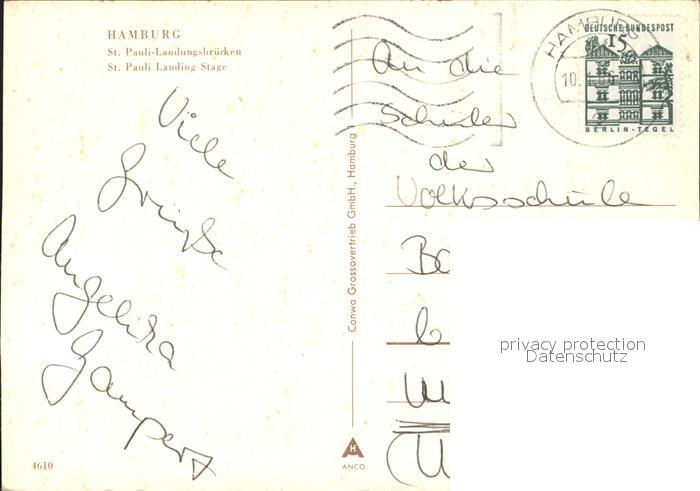 HAMBURG
St. Pauli-Landungsbrücken
St. Pauli Landing Stage
Viele
Grüße
Angelika
Gampert
4610
Conwa Grossovertrieb GmbH., Hamburg
ANCO
HAMBURG
10.
DEUTSCHE BUNDESPOST
15
BERLIN-TEGEL
An die
Schüler
der
Volksschule
privacy protection
Datenschutz